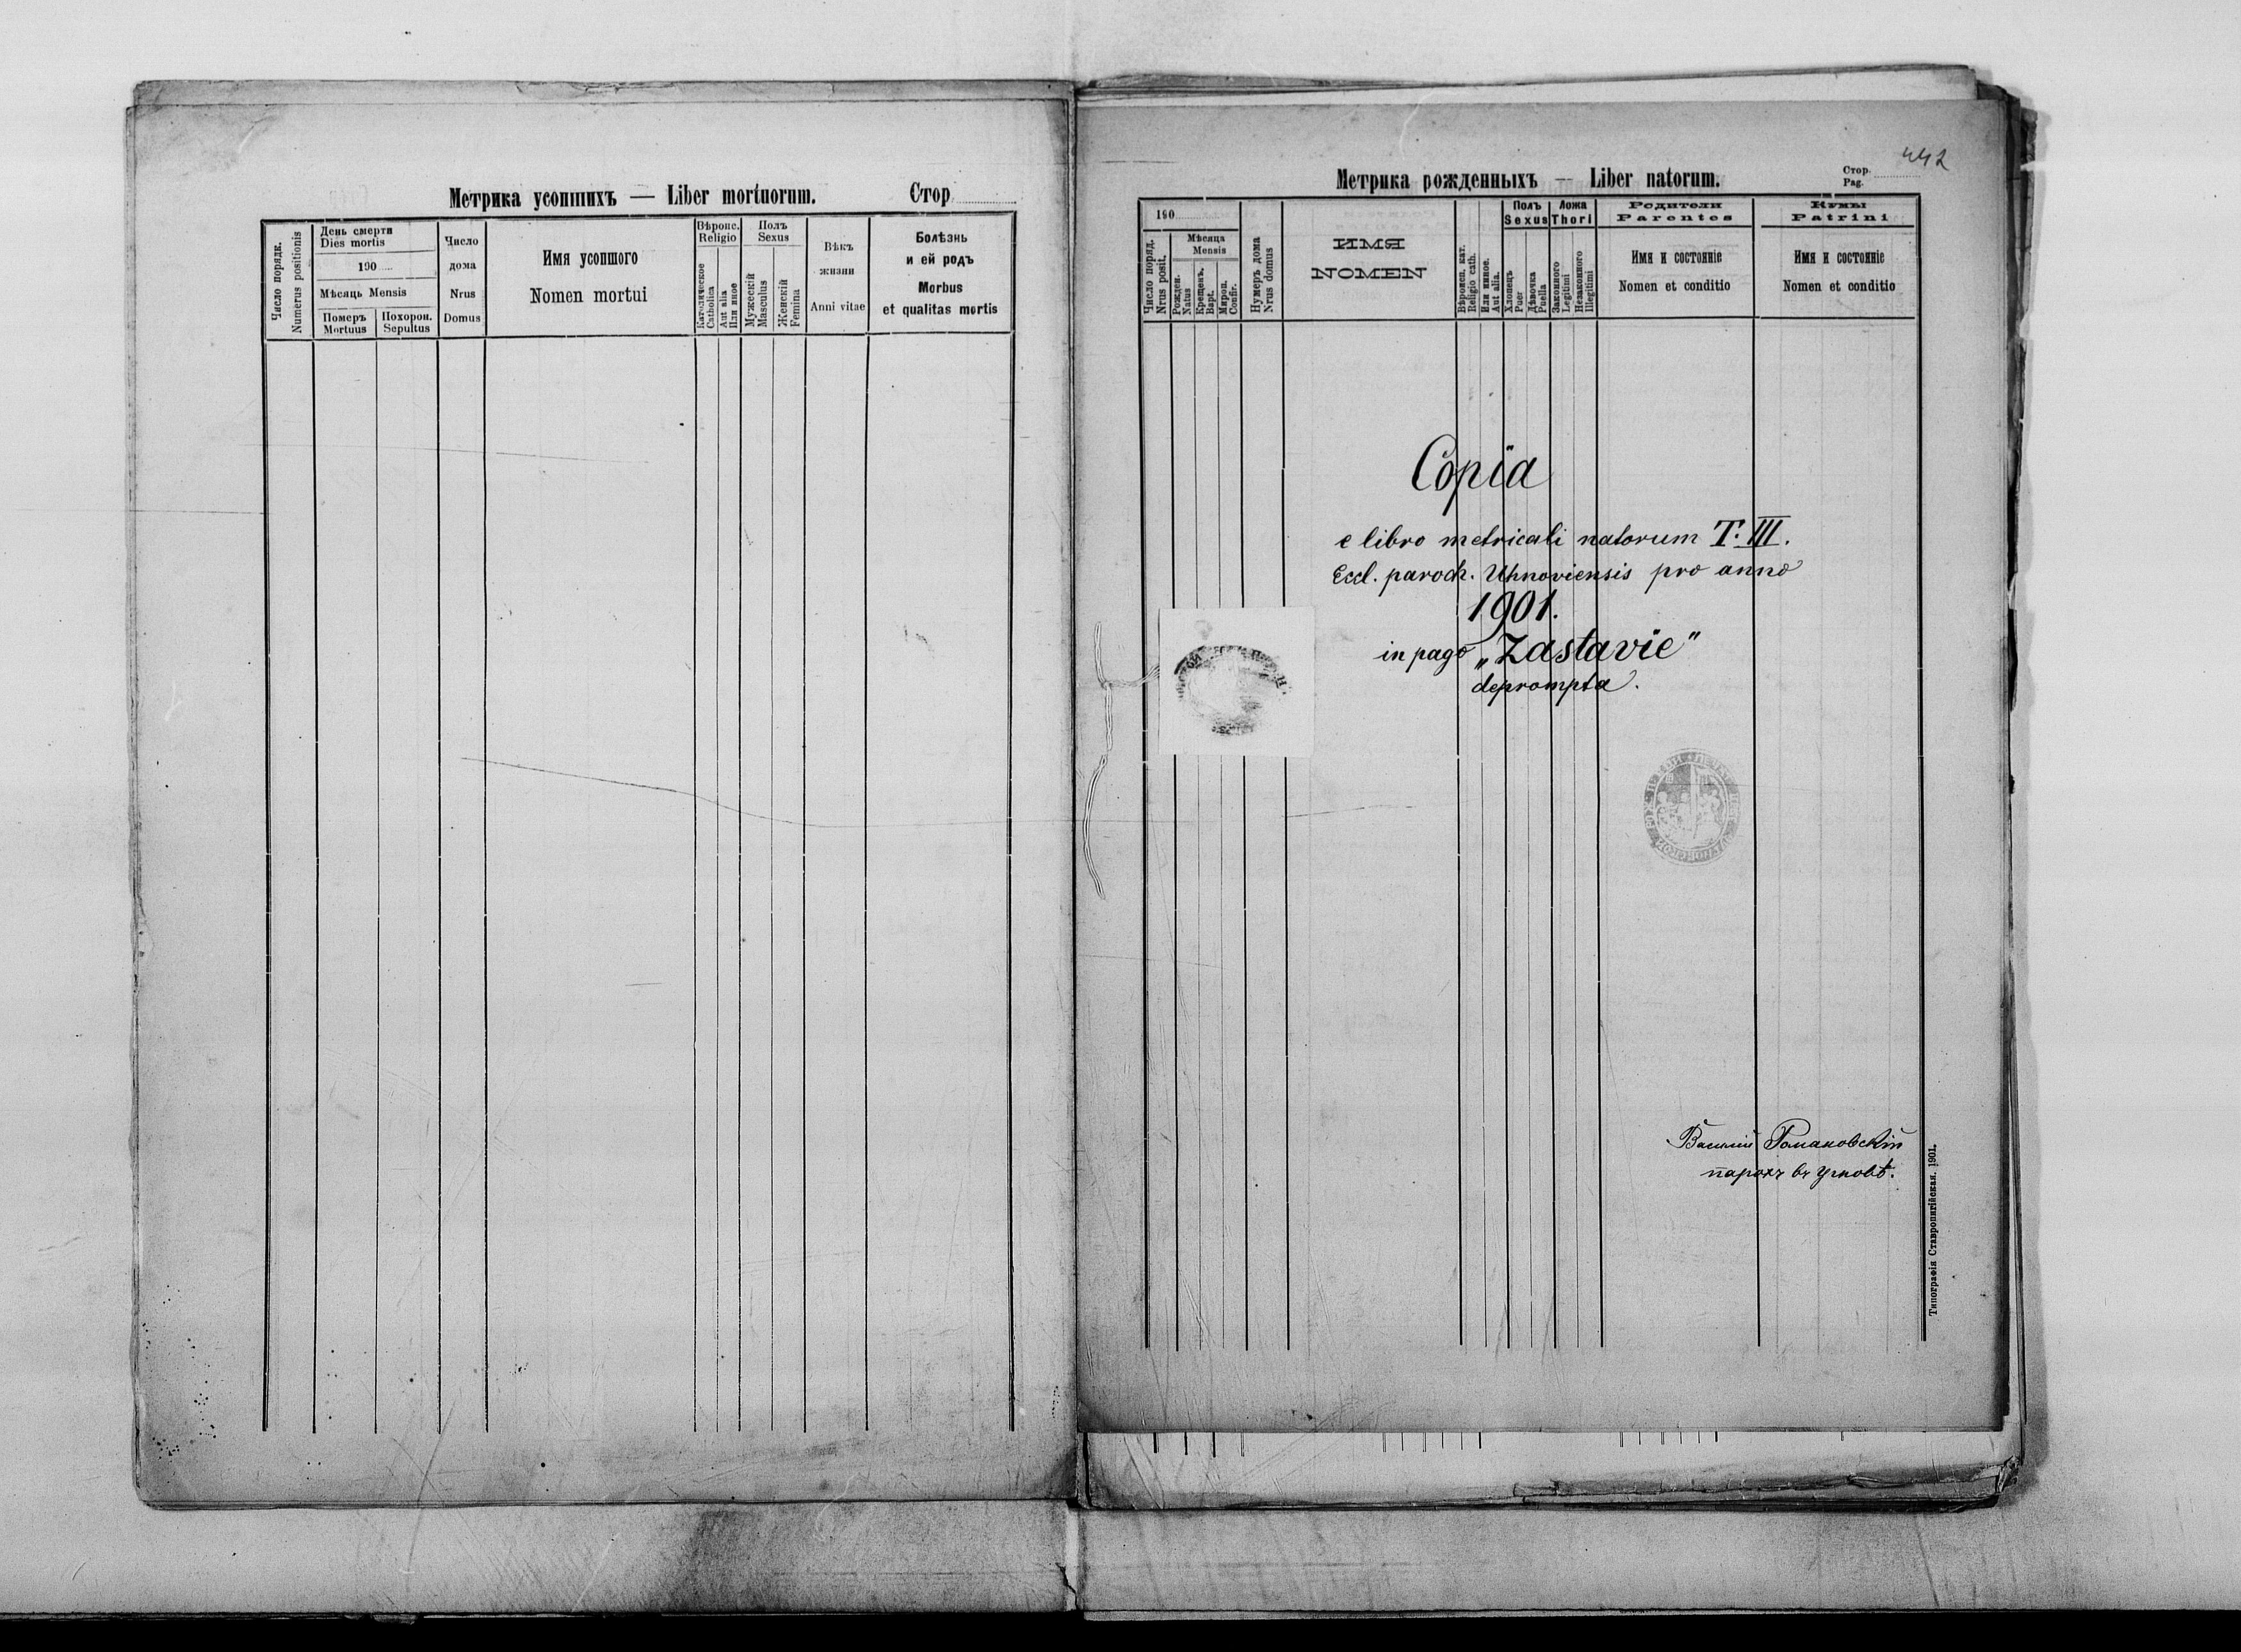 Метрика усопшихъ — Liber mortuorum.
Стор.
Число порядк.
Numerus positionis
День смерти
Dies mortis
190
Мѣсяць Mensis
Померъ
Mortuus
Похорон.
Sepultus
Число
дома
Nrus
Domus
Имя усопшого
Nomen mortui
Вѣроис.
Religio
Католическое
Catholica
Aut alia
Или иное
Полъ
Sexus
Мужескій
Masculus
Женскій
Femina
Вѣкъ
жизни
Anni vitae
Болѣзнь
и ей родъ
Morbus
et qualitas mortis
442
Метрика рожденныхъ — Liber natorum.
Стор.
Pag.
190
Число поряд.
Nrus posit.
Мѣсяца
Mensis
Рожден.
Natus
Крещенъ.
Bapt.
Миров.
Confir.
Нумеръ дома
Nrus domus
ИМЯ
NOMEN
Вѣроисп. кат.
Religio cath.
Или иное.
Aut alia.
Полъ
Sexus
Хлопецъ
Puer
Дѣвочка
Puella
Ложа
Thori
Законного
Legitimi
Незаконного
Illegitimi
Родители
Parentes
Имя и состояніе
Nomen et conditio
Кумы
Patrini
Имя и состояніе
Nomen et conditio
Copia
e libro metricali natorum T. III.
Eccl. paroch. Uhnoviensis pro anno
1901.
in pago „Zastavie"
deprompta.
Василій Романовскій
парохъ въ Угновѣ.
Типографія Ставропигійская. 1901.